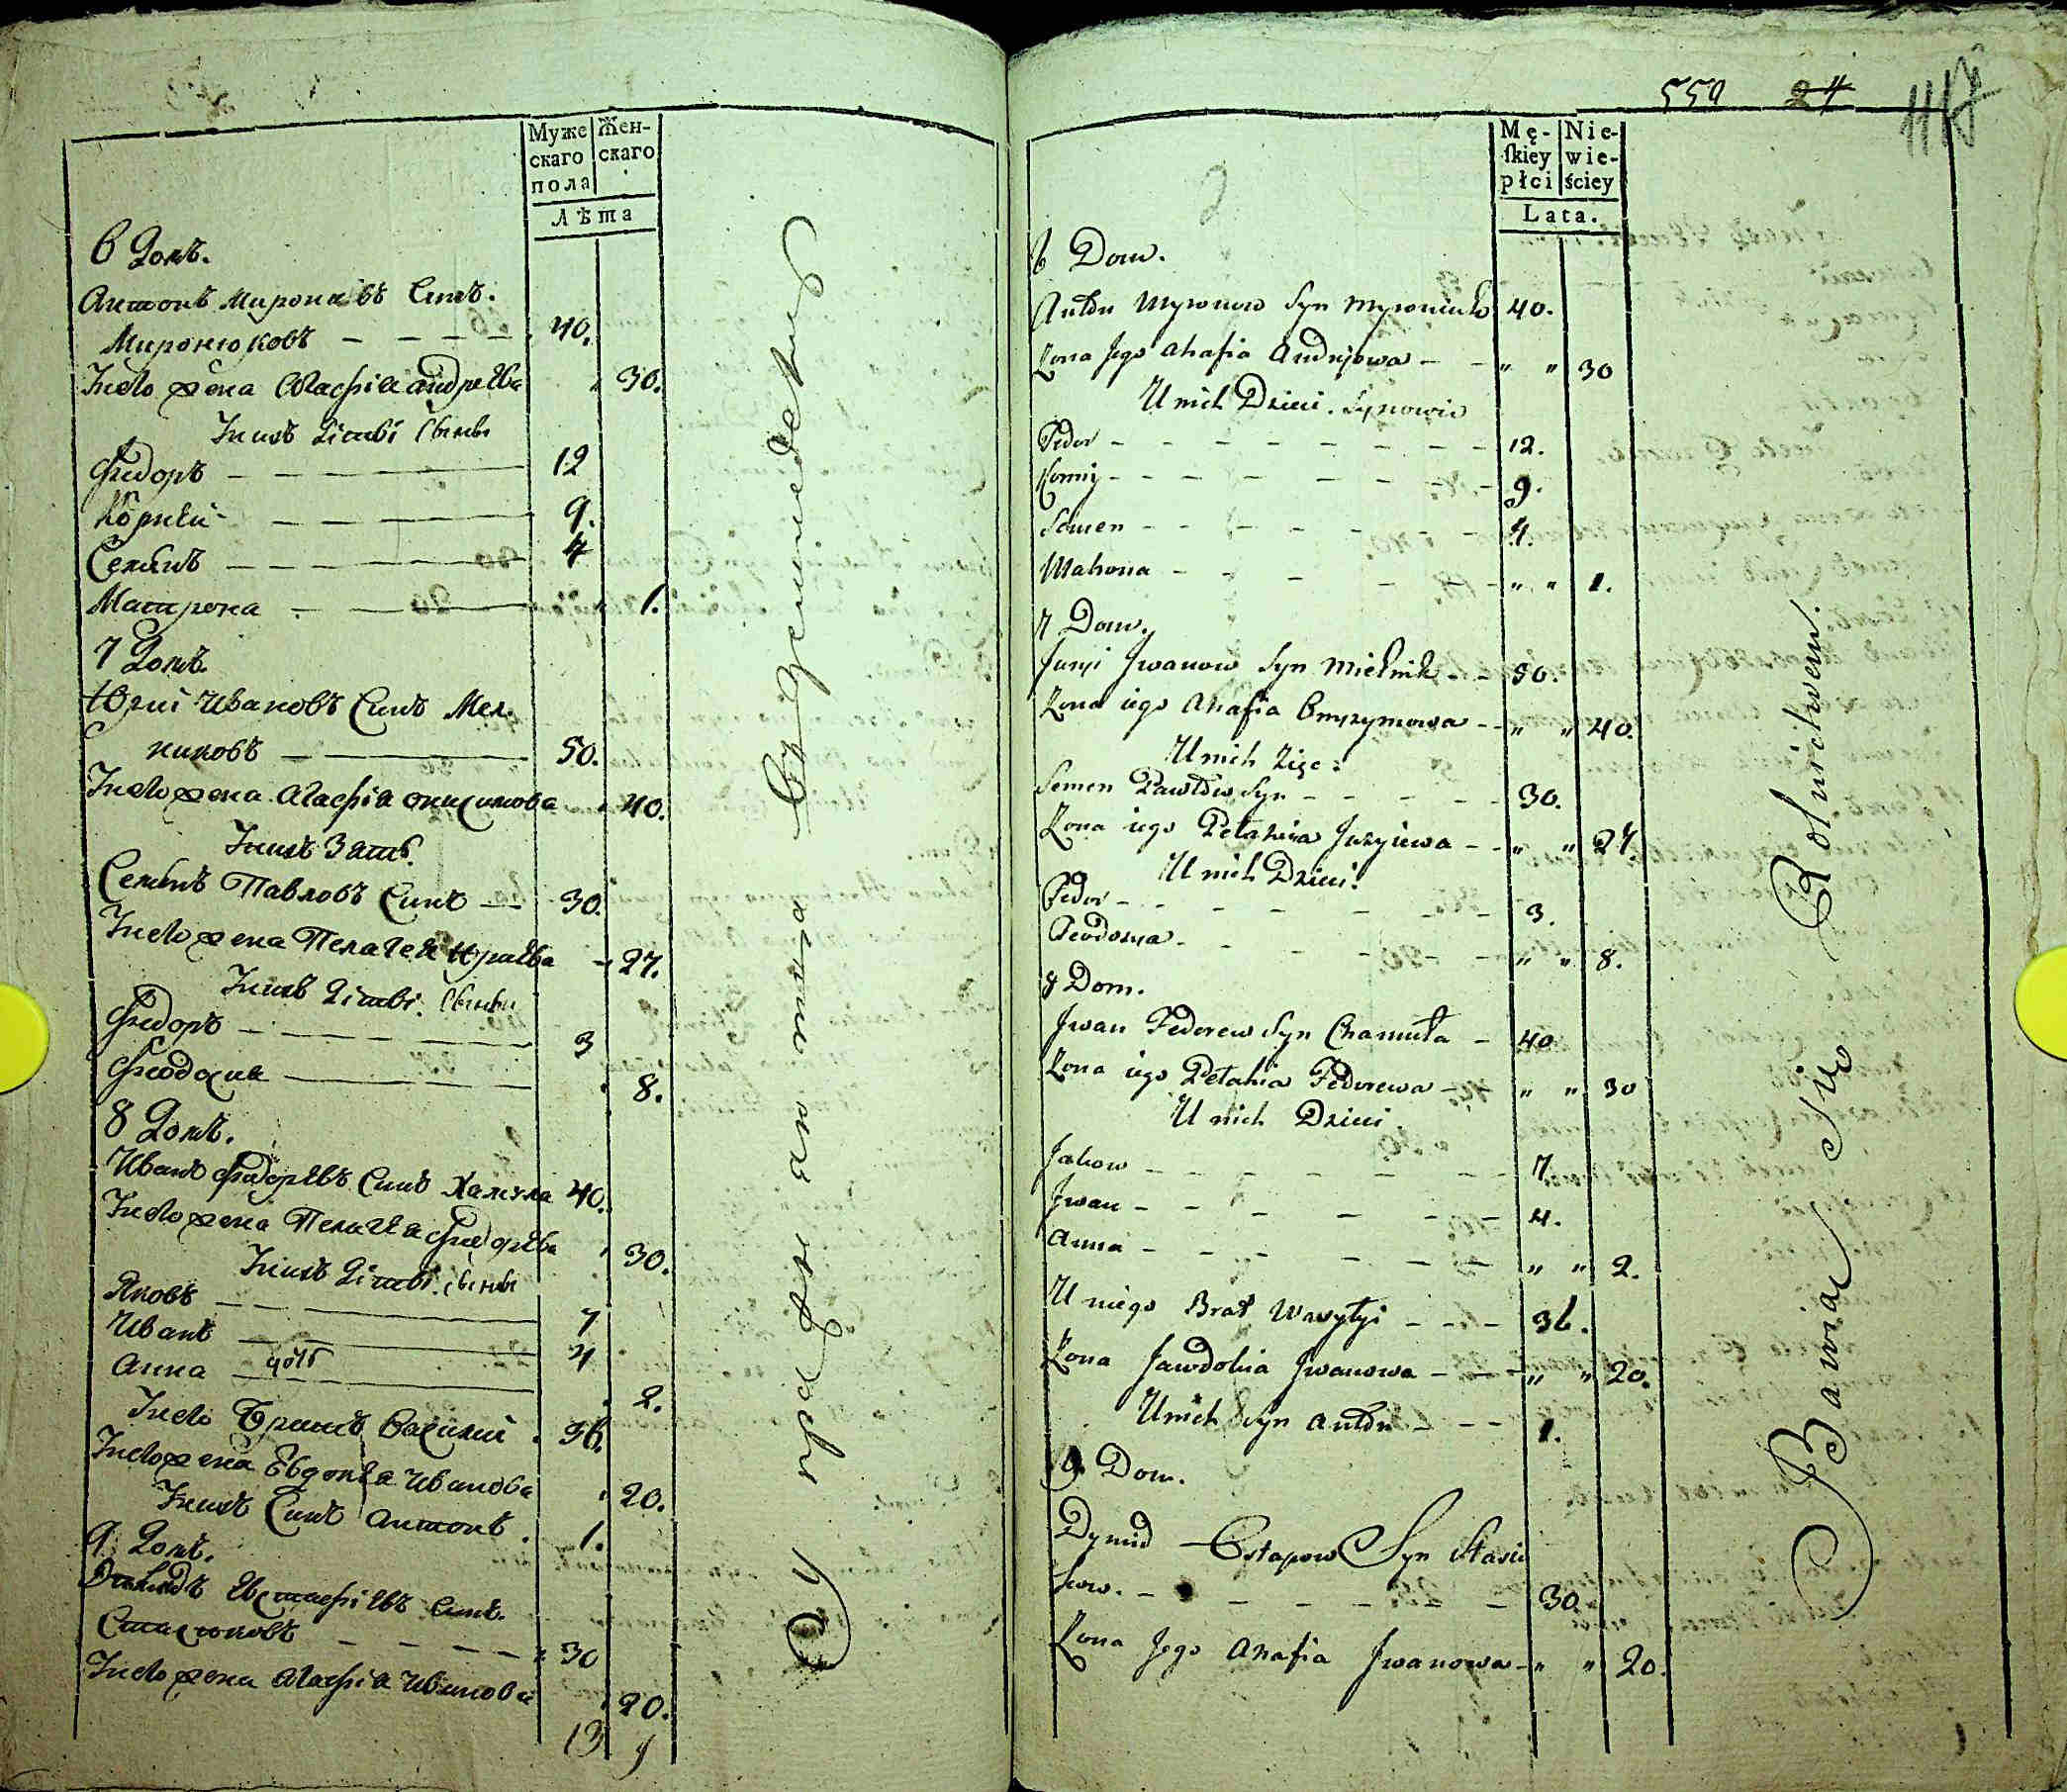 Муже
скаго
пола
Жен-
скаго
Лѣта
6 Домъ.
Антонъ Мироновъ Синъ.
Миронюковъ 40.
У него жена Агафія андреева 30.
У нихъ Дѣти Сыны
Федоръ 12
Корнѣй 9.
Семенъ 4
Матрона 1.
7 Домъ.
Юрій Ивановъ Синъ Мел.
никовъ 50.
У него жена Агафія онисимова 40.
У нихъ Зять.
Семенъ Павловъ Синъ 30.
У него жена Пелагея Юриева 27.
У нихъ Дѣти. Сыны
Федоръ 3
Феодосия 8.
8 Домъ.
Иванъ Федоревъ Синъ Хамула 40.
У него жена Пелагея Федорева 30.
У нихъ Дѣти. Сыны
Яковъ 7
Иванъ 4
Анна дочь 2.
У него Братъ Василий 36.
У него жена Евдокея Иванова 20.
У нихъ Синъ Антонъ. 1.
9. Домъ.
Демидъ Евстафіевъ Синъ.
Стасюковъ 30
У него жена Агафія Иванова 20.
13 9
559 24
1117
Mę-
skiey
płci
Nie-
wie-
ściey
Lata.
6 Dom.
Antón Myronow Syn Myroniuk 40.
Zona Jego Ahafia Andryiowa - - " " 30
U nich Dzieci. Synowie
Fedor - - - - - - - - 12.
Korniy - - - - - - - - 9.
Semen - - - - - - - 4.
Matrona - - - - - " " 1.
7 Dom.
Juryi Jwanow Syn Mielnik - - 50.
Zona iego Ahafia Onyzymowa - - " " 40.
U nich Zięć:
Semen Pawłów Syn - - - - - 30.
Zona iego Pelahia Juryiewa - - " " 27.
U nich Dzieci.
Fedor - - - - - - - 3.
Feodosya - - - - - - " " 8.
8 Dom.
Jwan Fedorew Syn Chamuła - 40
Zona iego Pelahia Fedorewa - " " 30
U nich Dzieci.
Jakow - - - - - - 7.
Jwan - - - - - - 4.
Anna - - - - - - " " 2.
U niego Brat Wasylyi - - - 36.
Zona Jawdokia Jwanowa - - - " " 20.
U nich Syn Antón - - - 1.
9 Dom.
Dymid Ostapow Syn Stasiu
kow. - - - - - - - 30
Zona Jego Ahafia Jwanowa - " " 20.
Bawiąc się Rolnictwem.